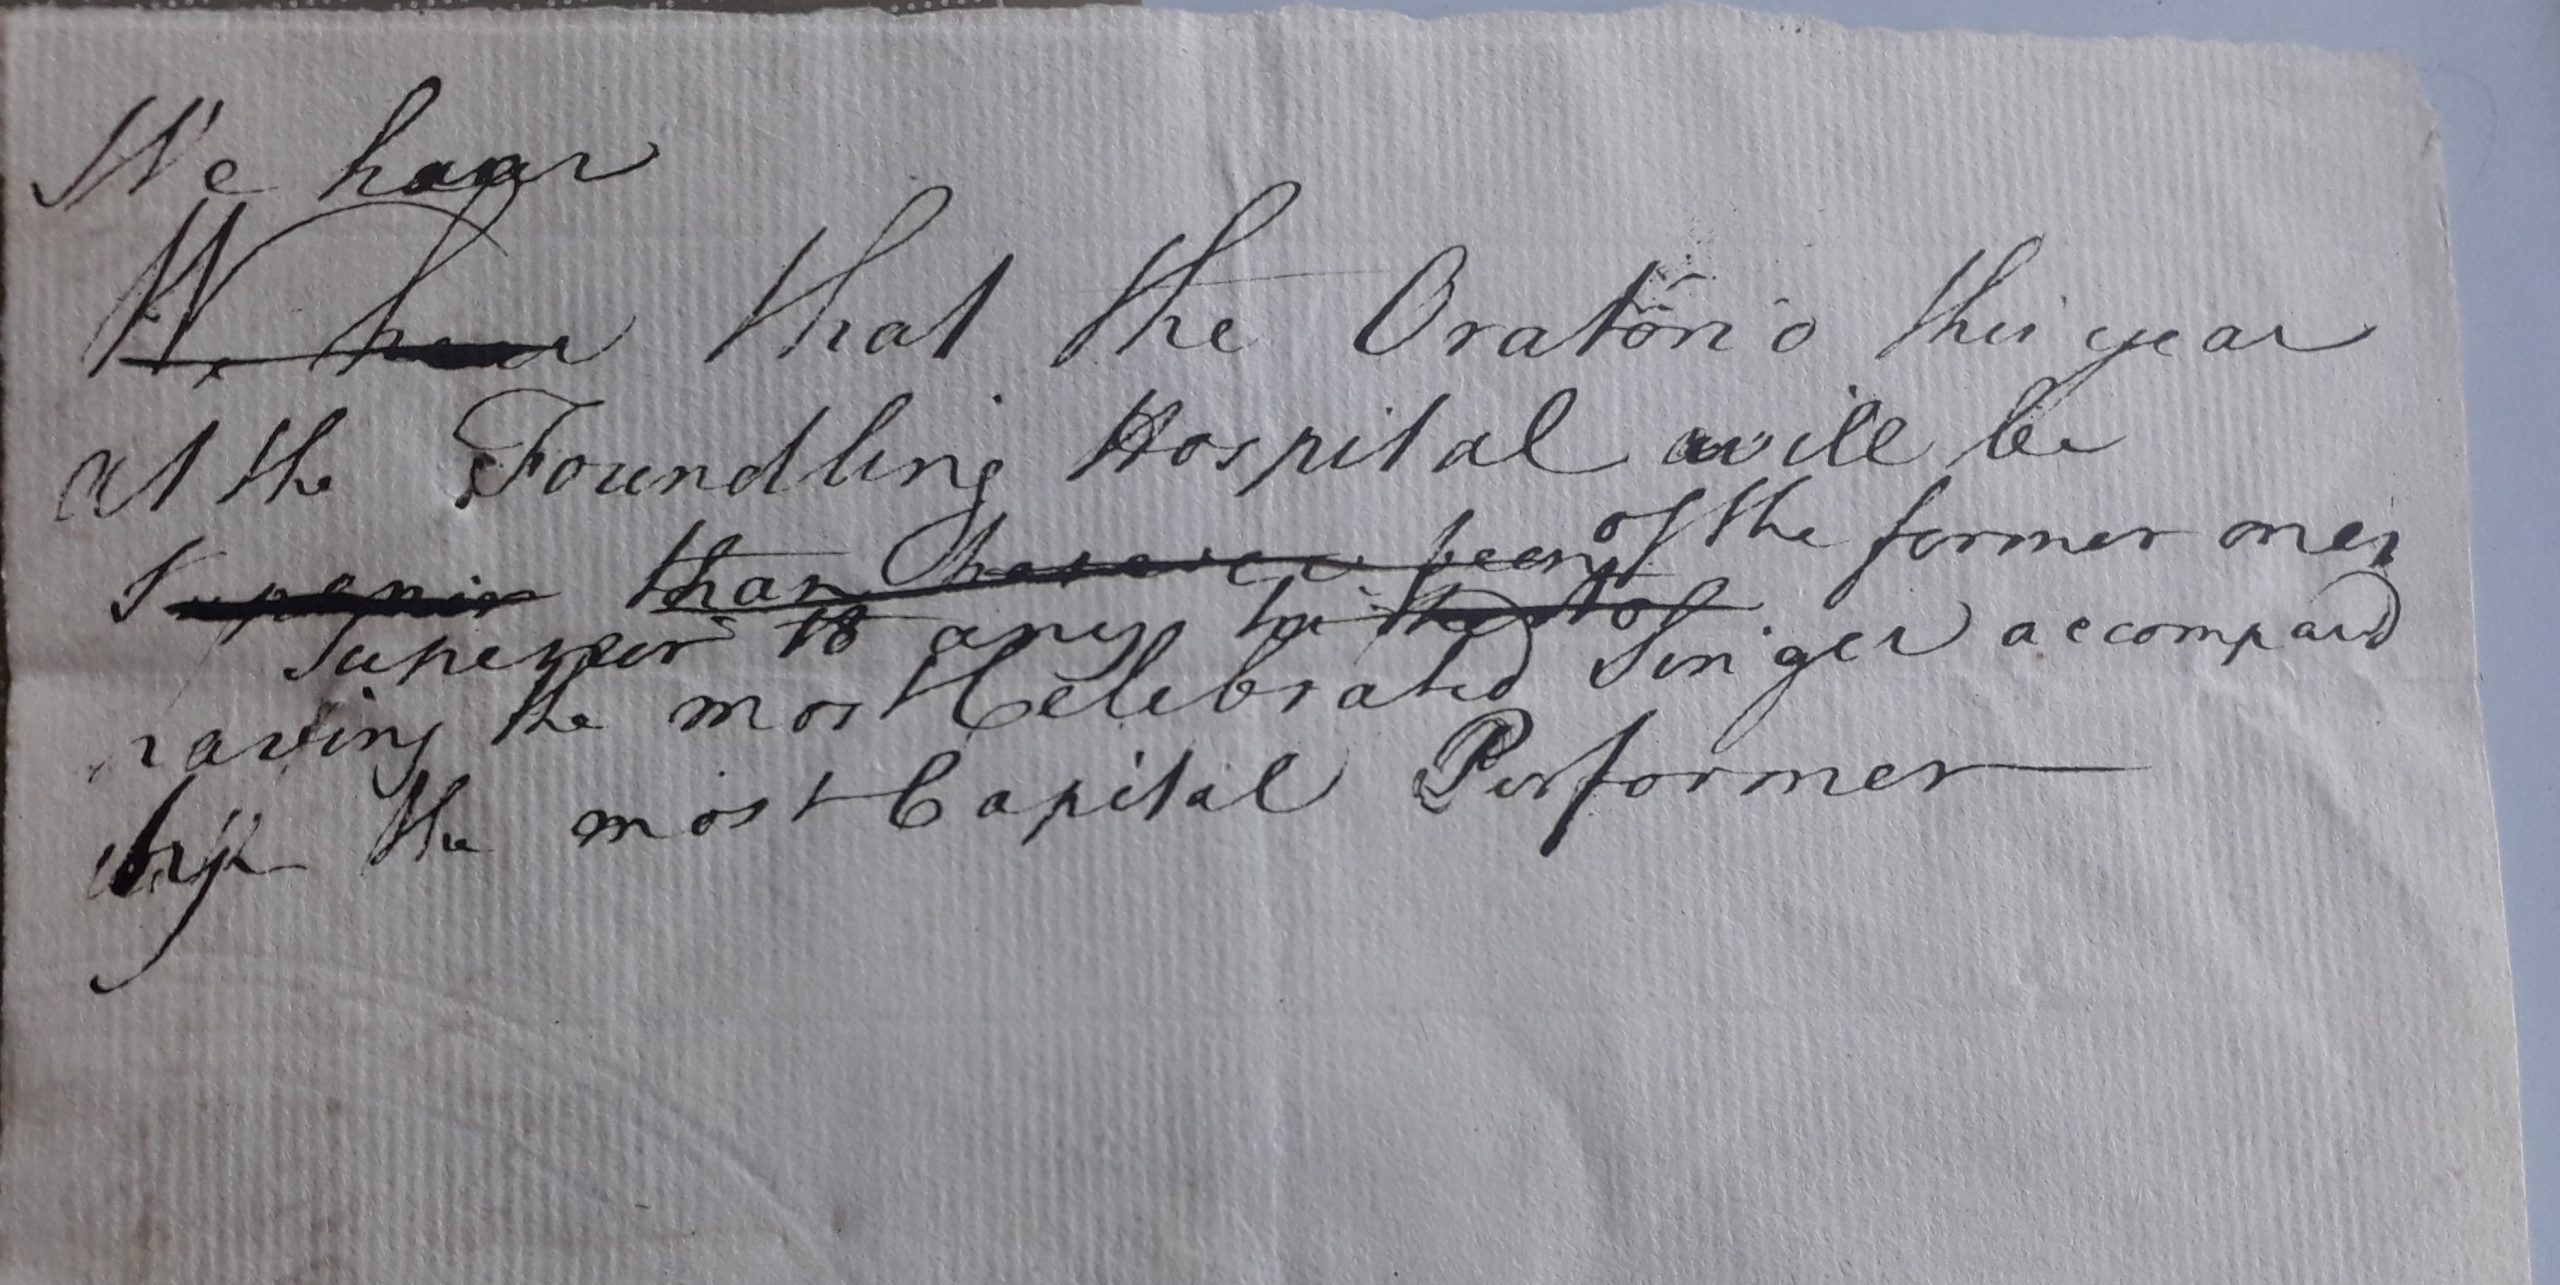 We hear
We hear that the Oratorio this year
at the Foundling Hospital will be
Superior than have ever been of the former ones
Superior to any
having the most Celebrated Singer accompand
by the most Capital Performer